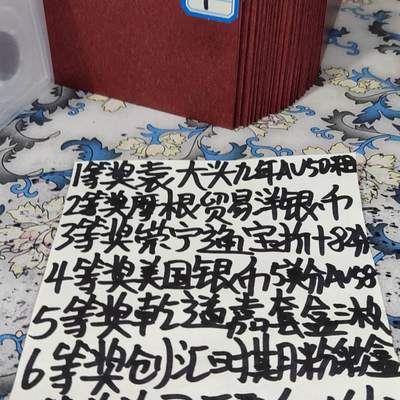 1等奖袁大头九年AU50粗
2等奖摩根贸易洋银币
3等奖崇宁通宝折十82分
4等奖美国银币5美分AU58
5等奖乾道 套盒三枚
6等奖创汇 期粉 盒